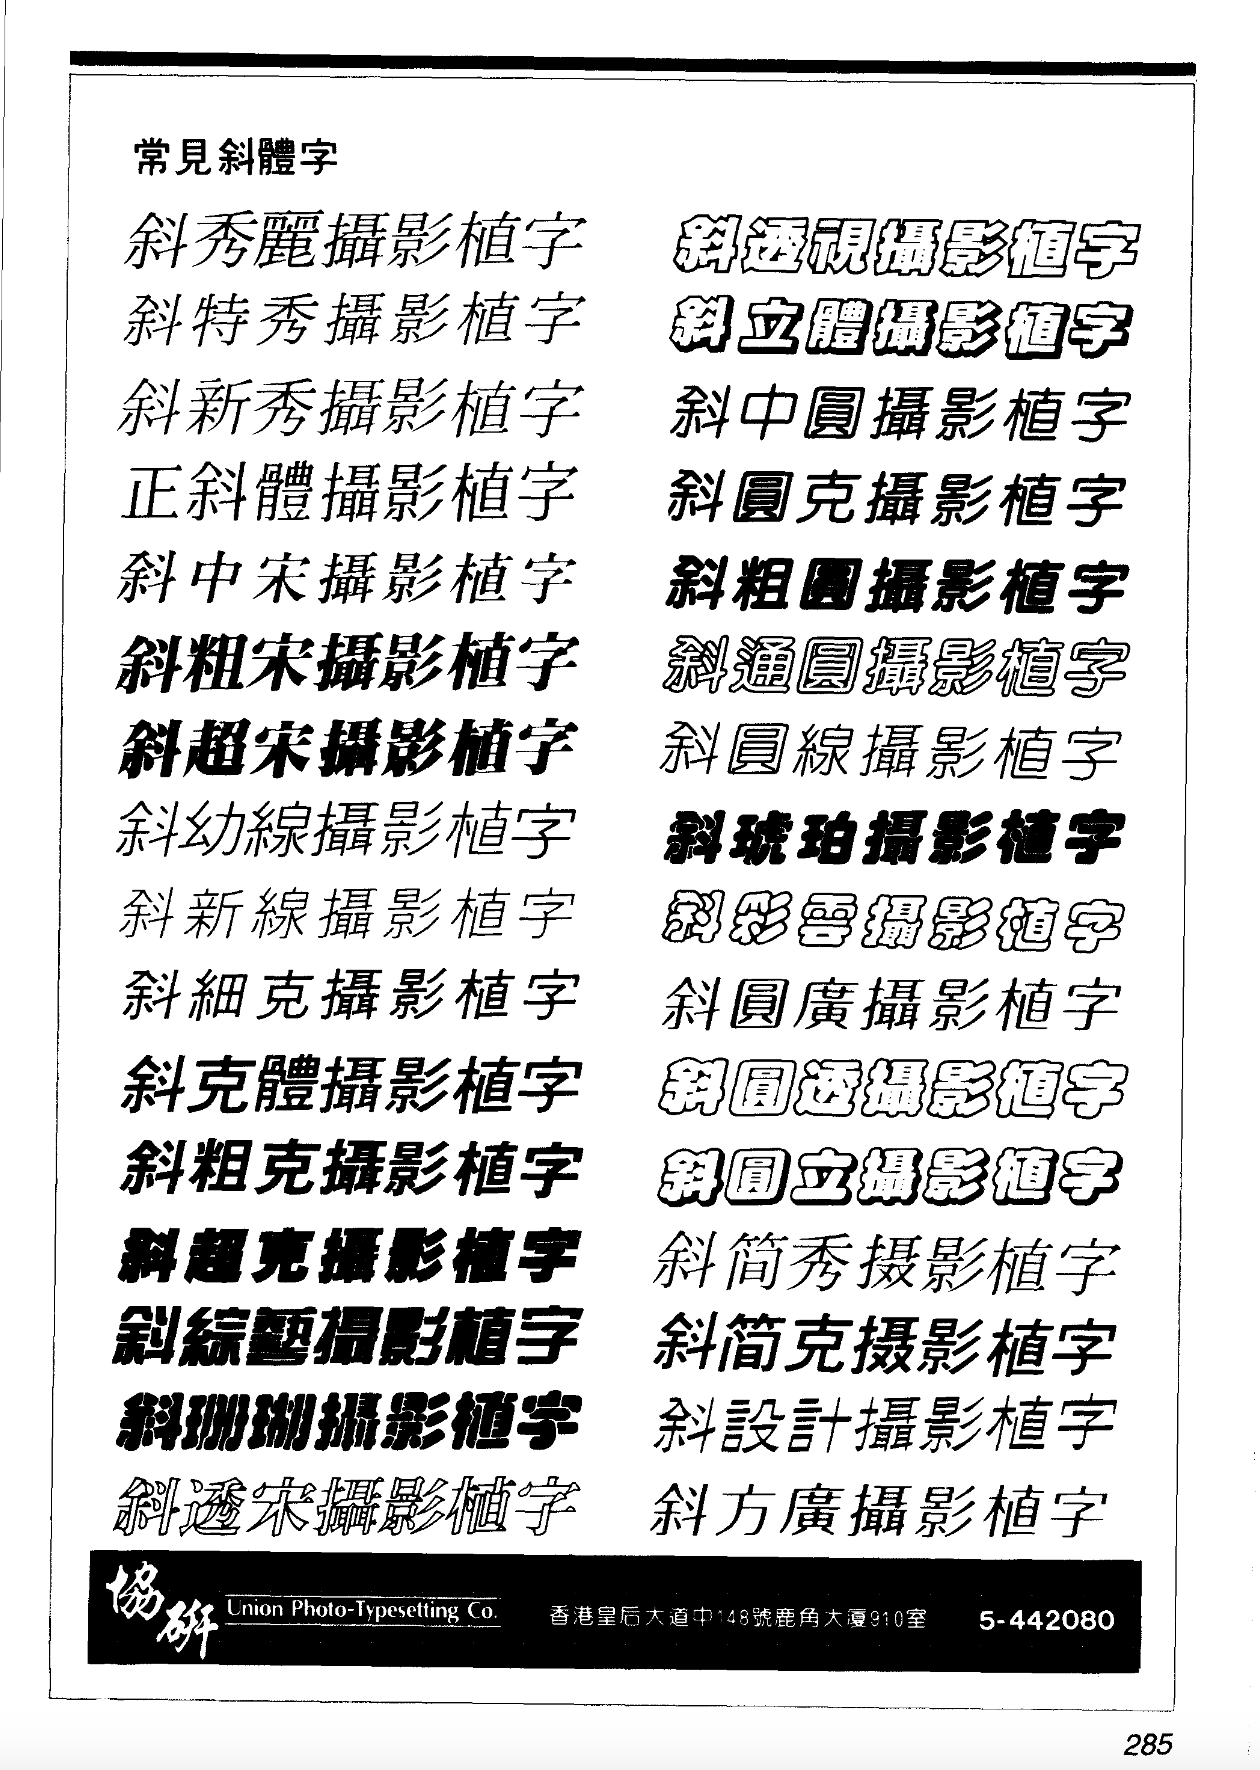 常見斜體字
斜秀麗攝影植字
斜特秀攝影植字
斜新秀攝影植字
正斜體攝影植字
斜中宋攝影植字
斜粗宋攝影植字
斜超宋攝影植字
斜幼線攝影植字
斜新線攝影植字
斜細克攝影植字
斜克體攝影植字
斜粗克攝影植字
斜超克攝影植字
斜綜藝攝影植字
斜珊瑚攝影植字
斜透宋攝影植字
斜透視攝影植字
斜立體攝影植字
斜中圓攝影植字
斜圓克攝影植字
斜粗圓攝影植字
斜通圓攝影植字
斜圓線攝影植字
斜琥珀攝影植字
斜彩雲攝影植字
斜圓廣攝影植字
斜圓透攝影植字
斜圓立攝影植字
斜简秀摄影植字
斜简克摄影植字
斜設計攝影植字
斜方廣攝影植字
協研 Union Photo-Typesetting Co. 香港皇后大道中148號鹿角大廈910室 5-442080
285